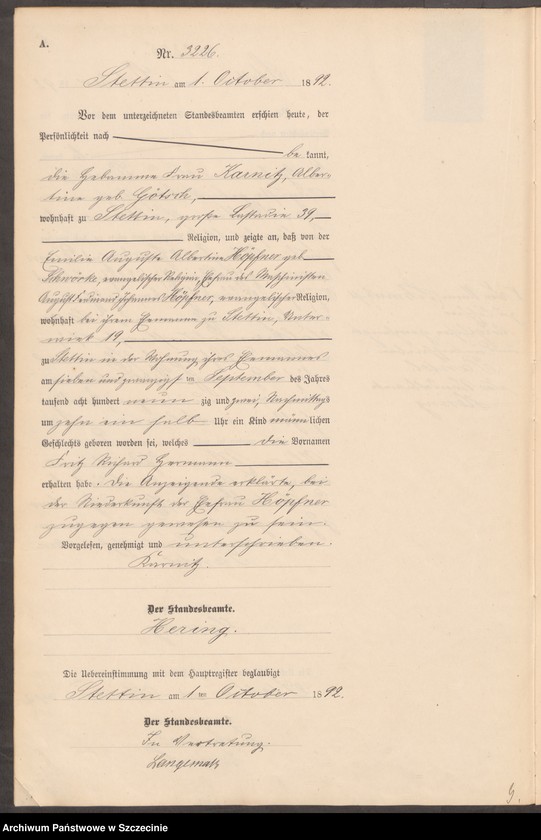 A.
Nr. 3226.
Stettin am 1. October 1892.
Vor dem unterzeichneten Standesbeamten erschien heute, der
Persönlichkeit nach
be kannt,
die Hebamme Frau Karnitz, Alber-
tine geb. Götsch,
wohnhaft zu Stettin, große Lastadie 39,
Religion, und zeigte an, daß von der
Emilie Auguste Albertine Höpfner geb.
evangelischer Religion, Ehefrau des Maschinisten
August Ferdinand Johannes Höpfner, evangelischer Religion,
wohnhaft bei ihrem Ehemanne zu Stettin, Unter-
wiek 19,
zu Stettin in der Wohnung ihres Ehemannes
am sieben und zwanzigsten September des Jahres
tausend acht hundert neun zig und zwei, Nachmittags
um zehn ein halb Uhr ein Kind männlichen
Geschlechts geboren worden sei, welches die Vornamen
Fritz Richard Hermann
erhalten habe. Die Anzeigende erklärte, bei
der Niederkunft der Ehefrau Höpfner
zugegen gewesen zu sein.
Vorgelesen, genehmigt und unterschrieben.
Karnitz.
Der Standesbeamte.
Hering.
Die Uebereinstimmung mit dem Hauptregister beglaubigt
Stettin am 1ten October 1892.
Der Standesbeamte.
In Vertretung.
Archiwum Państwowe w Szczecinie